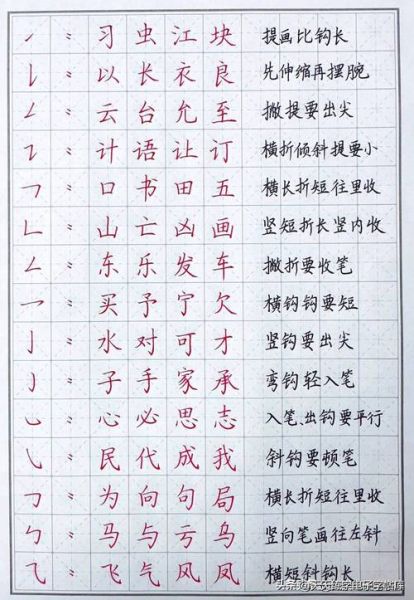 ㇀ 〃 习 虫 江 块 提画比钩长
𠄌 〃 以 长 衣 良 先伸缩再摆腕
𠃋 〃 云 台 允 至 撇提要出尖
㇊ 〃 计 语 让 订 横折倾斜提要小
𠃍 〃 口 书 田 五 横长折短往里收
𠃊 〃 山 亡 凶 画 竖短折长竖内收
𠃋 〃 东 乐 发 车 撇折要收笔
乛 〃 买 予 宁 欠 横钩钩要短
亅 〃 水 对 可 才 竖钩要出尖
㇁ 〃 子 手 家 承 弯钩轻入笔
㇃ 〃 心 必 思 志 入笔、出钩要平行
㇂ 〃 民 代 成 我 斜钩要顿笔
𠃌 〃 为 向 句 局 横长折短往里收
㇉ 〃 马 与 亏 乌 竖向笔画往左斜
⺄ 〃 飞 气 风 凤 横短斜钩长